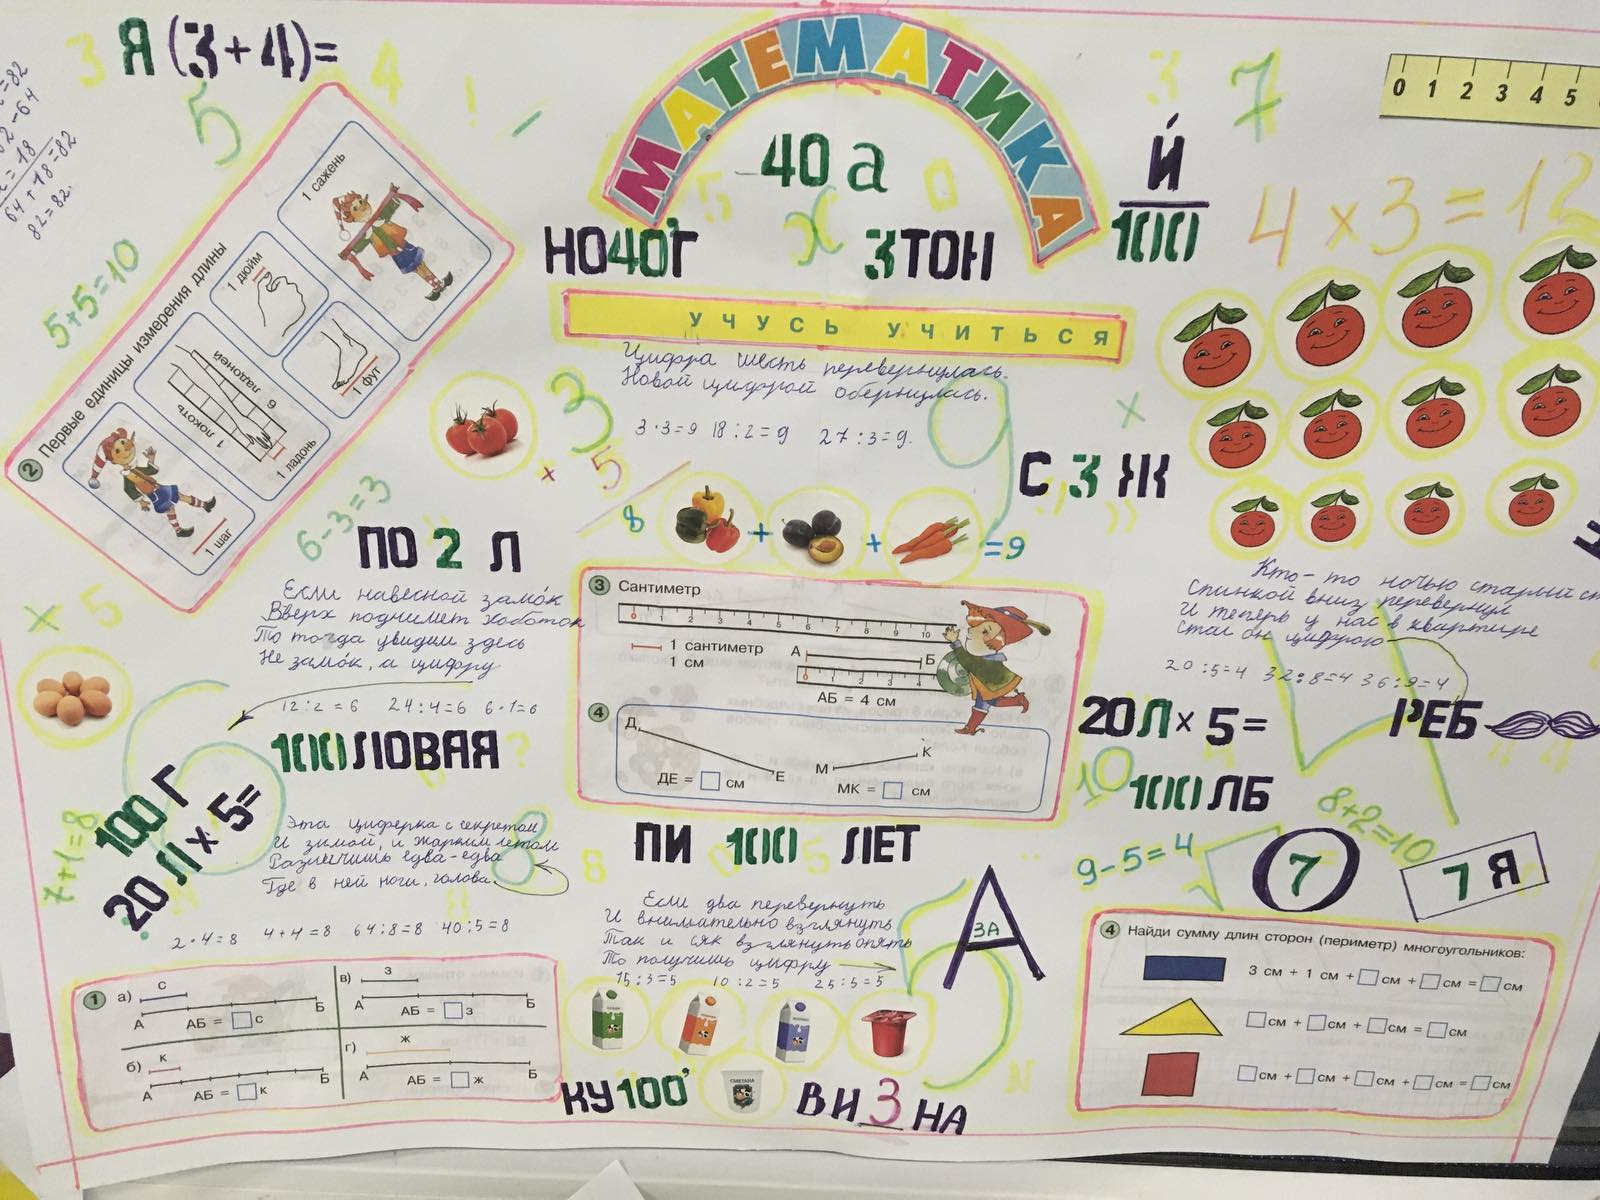 3 Я (3+4)= 4
5
! -
МАТЕМАТИКА
40 а
5 х 0
3 7
0 1 2 3 4 5
=82
-64
=18
64+18=82
82=82.
НО40'Г
3ТОН
Й
100
4 х 3 = 12
УЧУСЬ УЧИТЬСЯ
5+5=10
2 Первые единицы измерения длины
1 шаг
1 локоть
6 ладоней
1 ладонь
1 дюйм
1 фут
1 сажень
Цифра шесть перевернулась.
Новой цифрой обернулась.
3·3=9 18:2=9 27:3=9.
9
3
× 5
х
С 3 Ж
6-3=3
8 + + =9
ПО 2 Л
Если навесной замок
Вверх поднимет хоботок
То тогда увидим здесь
Не замок, а цифру
12:2=6 24:4=6 6·1=6
6
х 5
3 Сантиметр
0 1 2 3 4 5 6 7 8 9 10
1 сантиметр
1 см
А Б
0 1 2 3 4
АБ = 4 см
4
Д Е М К
ДЕ = см МК = см
Кто-то ночью старый
Спинкой вниз перевернул
И теперь у нас в квартире
Стал он цифрою
20:5=4 32:8=4 36:9=4
4
20Л х 5=
РЕБ
100ЛОВАЯ ?
100 Г
20 Л х 5=
7+1=8
10
100ЛБ
8+2=10
9-5=4
7
7 Я
Эта циферка с секретом
И зимой, и жарким летом
Различишь едва-едва
Где в ней ноги, голова.
8
2·4=8 4+4=8 64:8=8 40:5=8
ПИ 100 ЛЕТ
8 0 5
Если два перевернуть
И внимательно взглянуть
Так и сяк взглянуть опять
То получишь цифру
15:3=5 10:2=5 25:5=5
5
А
ЗА
1
а) с
А Б
АБ = с
б) к
А Б
АБ = к
в) з
А Б
АБ = з
г) ж
А Б
АБ = ж
4 Найди сумму длин сторон (периметр) многоугольников:
3 см + 1 см + см + см = см
см + см + см = см
см + см + см + см = см
КУ100'
СМЕТАНА
ВИ3НА